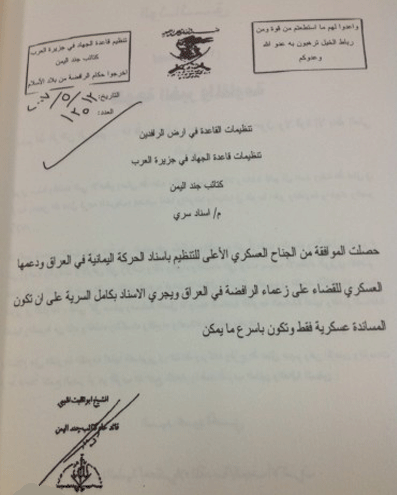 واعدوا لهم ما استطعتم من قوة ومن
رباط الخيل ترهبون به عدو الله
وعدوكم
تنظيم قاعدة الجهاد في جزيرة العرب
كتائب جند اليمن
اخرجوا حكام الرافضة من بلاد الاسلام
التاريخ:
العدد: ١٢٥
تنظيمات القاعدة في ارض الرافدين
تنظيمات قاعدة الجهاد في جزيرة العرب
كتائب جند اليمن
م/ اسناد سري
حصلت الموافقة من الجناح العسكري الأعلى للتنظيم بأسناد الحركة اليمانية في العراق ودعمها
العسكري للقضاء على زعماء الرافضة في العراق ويجري الاسناد بكامل السرية على ان تكون
المساندة عسكرية فقط وتكون بأسرع ما يمكن
الشيخ ابو الليث
قائد عام كتائب جند اليمن